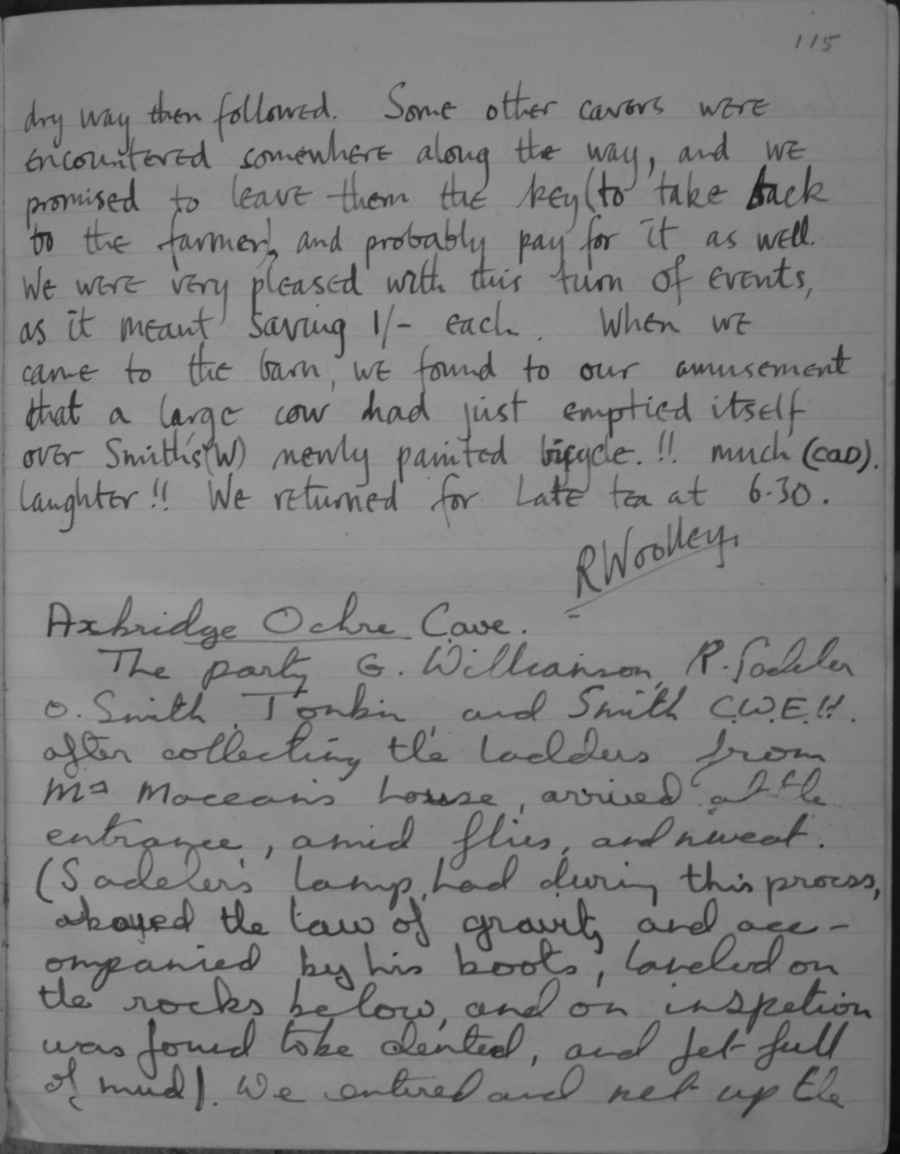 115
dry way then followed. Some other cavers were
encountered somewhere along the way, and we
promised to leave them the key (to take back
to the farmer), and probably pay for it as well.
We were very pleased with this turn of events,
as it meant saving 1/- each. When we
came to the barn, we found to our amusement
that a large cow had just emptied itself
over Smith's (W) newly painted bicycle.!! much (CAD).
laughter!! We returned for late tea at 6.30.
R Woolley.
Axbridge Ochre Cave.
The party G. Williamson, R. Sadeler
O. Smith, Tonkin, and Smith C.W.E.H.
after collecting the ladders from
house, arrived at the
entrance, amid flies, and sweat.
(Sadeler's lamp, had during this process,
obayed the law of gravity and acc-
ompanied by his boots, landed on
the rocks below, and on inspetion
was found to be dented, and jet full
of mud). We entired and up the